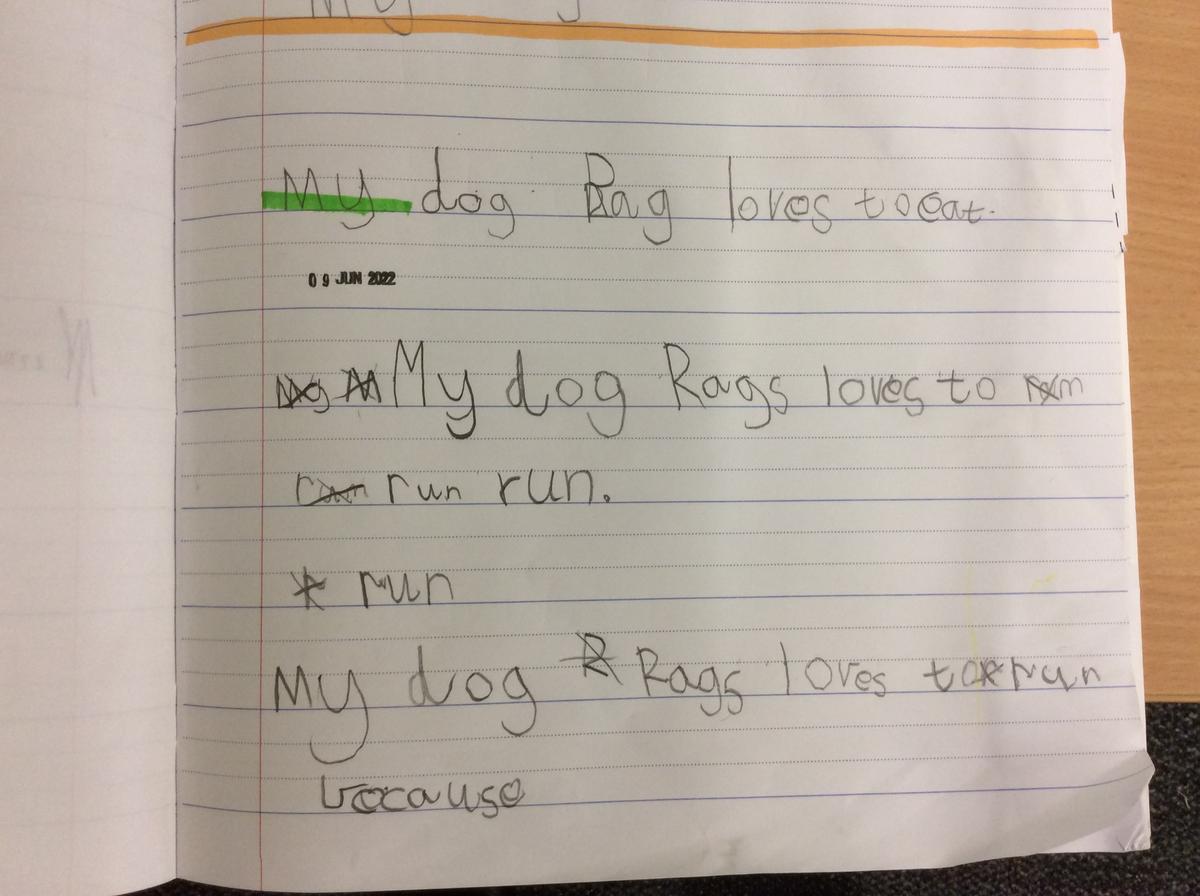 My dog Rag loves to eat.
09 JUN 2022
My dog Rags loves to
run run.
* run
My dog Rags loves to run
because